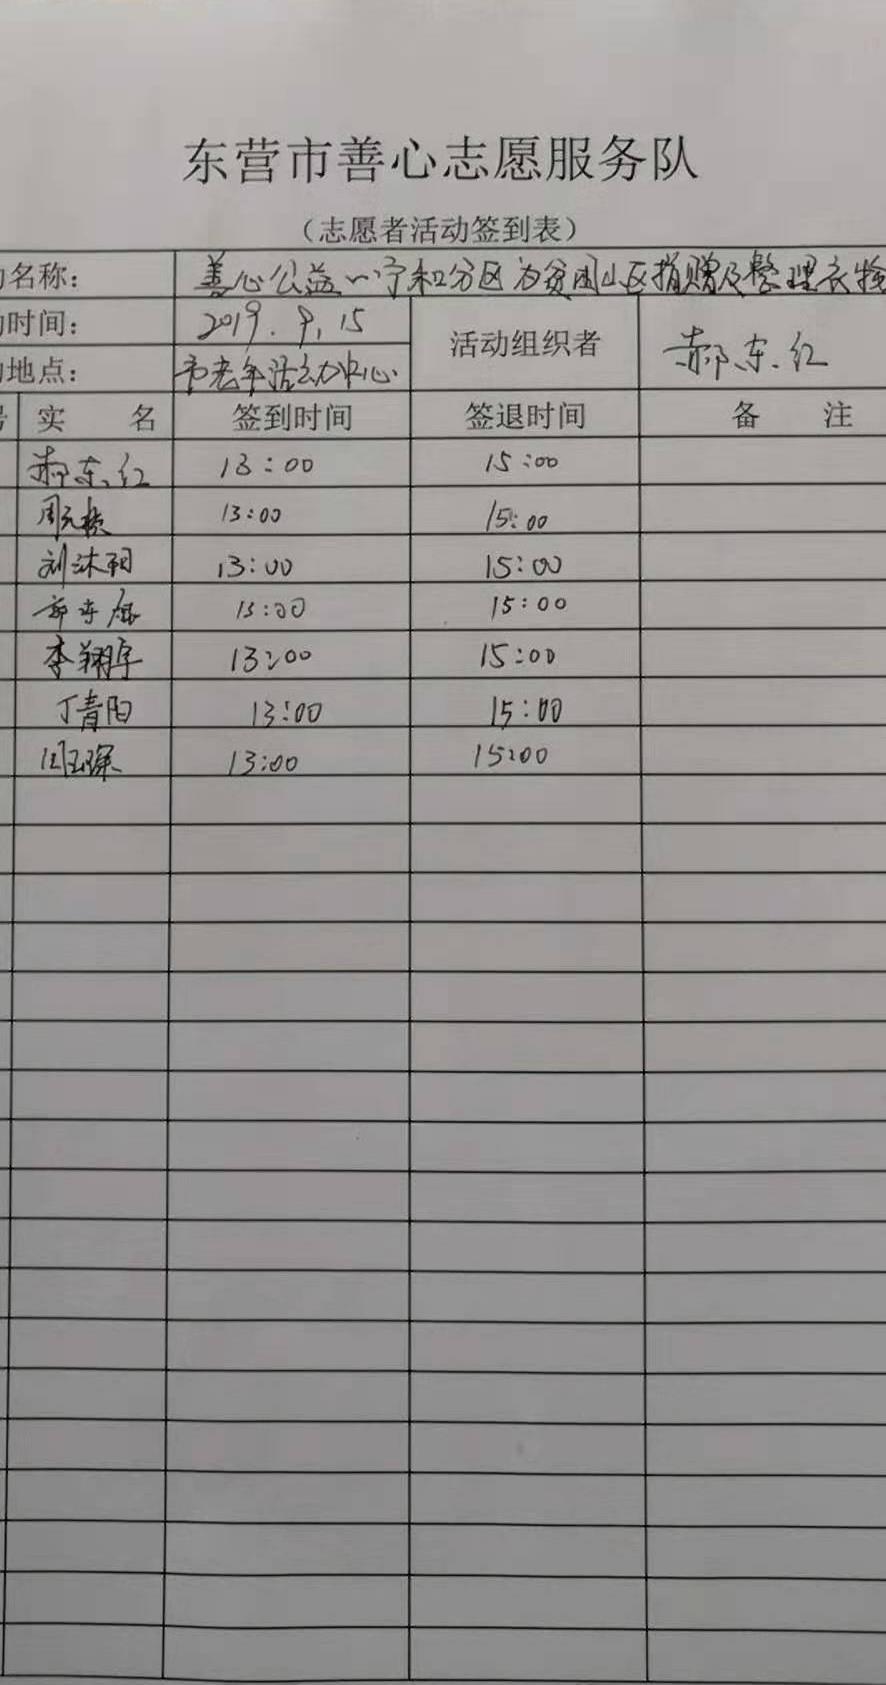 东营市善心志愿服务队
（志愿者活动签到表）
名称： 善心公益 宁和分区为贫困山区捐赠及整理衣物
时间： 2019.9.15 活动组织者 郝东红
地点： 市老年活动中心
实 名 签到时间 签退时间 备 注
郝东红 13:00 15:00
周 13:00 15:00
刘沐阳 13:00 15:00
13:00 15:00
李翔宇 13:00 15:00
丁青阳 13:00 15:00
周玉琛 13:00 15:00